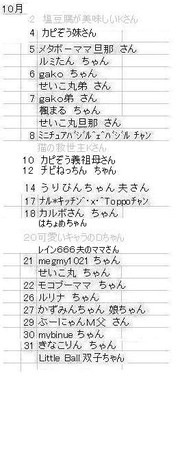 10月
2 塩豆腐が美味しいKさん
4 カピぞう妹さん
5 メタボーママ旦那 さん
ルミたん ちゃん
6 gako ちゃん
せいこ丸弟 さん
7 gako弟 さん
楓まる ちゃん
せいこ丸旦那 さん
8 ミニチュアバジルヂェバジル チャン
猫の救世主Kさん
10 カピぞう義祖母さん
12 チビねっちん ちゃん
14 うりぴんちゃん夫さん
17 ナル*キッチン・x・Toppoチャン
18 カルボさん ちゃん
はちょめちゃん
20 可愛いキャラのDちゃん
レイン666夫のママさん
21 megmy1021 ちゃん
せいこ丸 ちゃん
22 モコブーママ ちゃん
26 ルリナ ちゃん
27 かずみんちゃん 娘ちゃん
29 ぶーにゃんM父 さん
30 mybinue ちゃん
31 きなこりん ちゃん
Little Ball 双子ちゃん